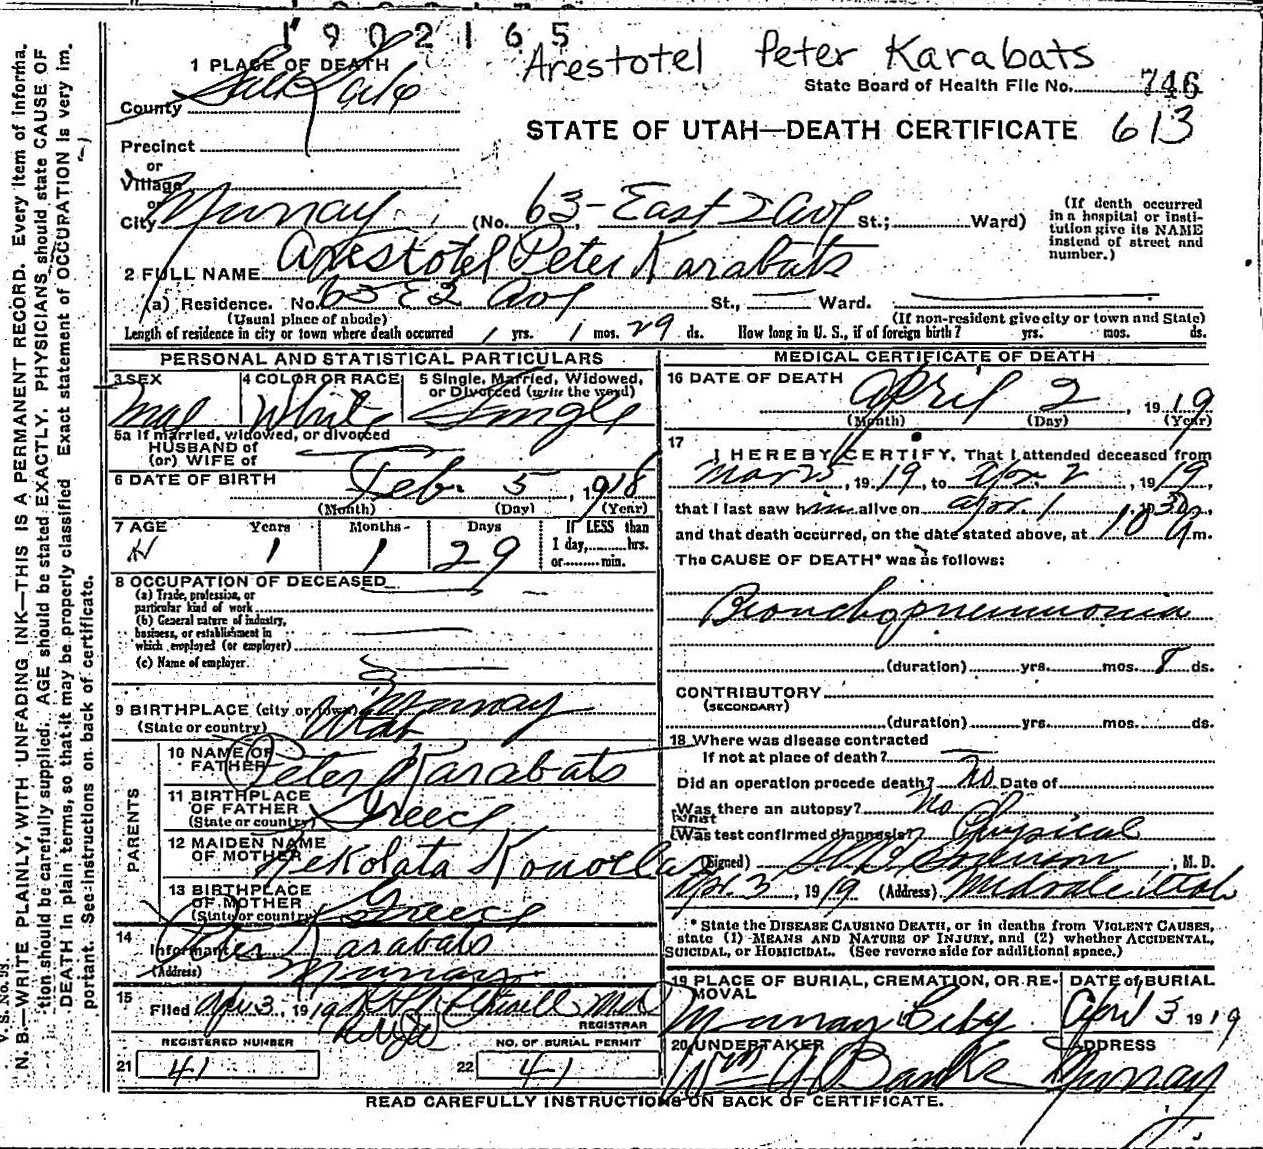 1902165
Arestotel Peter Karabats
1 PLACE OF DEATH
State Board of Health File No. 746
County Salt Lake
STATE OF UTAH—DEATH CERTIFICATE 613
Precinct
or
Village
or
City Murray (No. 63 - East 2 Ave St.; Ward)
(If death occurred
in a hospital or insti-
tution give its NAME
instead of street and
number.)
2 FULL NAME Arestotel Peter Karabats
(a) Residence. No. 63 E 2 Ave St., Ward.
(Usual place of abode) (If non-resident give city or town and State)
Length of residence in city or town where death occurred 1 yrs. 1 mos. 29 ds. How long in U. S., if of foreign birth? yrs. mos. ds.
PERSONAL AND STATISTICAL PARTICULARS
3 SEX 4 COLOR OR RACE 5 Single, Married, Widowed,
or Divorced (write the word)
Mal White Single
5a If married, widowed, or divorced
HUSBAND of
(or) WIFE of
6 DATE OF BIRTH Feb. 5, 1918
(Month) (Day) (Year)
7 AGE Years Months Days If LESS than
1 1 29 1 day, hrs.
or min.
8 OCCUPATION OF DECEASED
(a) Trade, profession, or
particular kind of work
(b) General nature of industry,
business, or establishment in
which employed (or employer)
(c) Name of employer
9 BIRTHPLACE (city or town) Murray
(State or country) Utah
PARENTS
10 NAME OF
FATHER Peter Karabats
11 BIRTHPLACE
OF FATHER
(State or country) Greece
12 MAIDEN NAME
OF MOTHER
13 BIRTHPLACE
OF MOTHER
(State or country) Greece
14
Informant Peter Karabats
(Address) Murray
15
Filed Apr 3, 1919
REGISTRAR
REGISTERED NUMBER NO. OF BURIAL PERMIT
21 41 22 41
MEDICAL CERTIFICATE OF DEATH
16 DATE OF DEATH April 2, 1919
(Month) (Day) (Year)
17
I HEREBY CERTIFY, That I attended deceased from
Mar 25, 19 19, to Apr. 2, 19 19,
that I last saw him alive on Apr. 1, 19
and that death occurred, on the date stated above, at 10 30 a m.
The CAUSE OF DEATH* was as follows:
Bronchopneumonia
(duration) yrs. mos. 8 ds.
CONTRIBUTORY
(SECONDARY)
(duration) yrs. mos. ds.
18 Where was disease contracted
If not at place of death?
Did an operation procede death? No Date of
Was there an autopsy? No
What
Was test confirmed diagnosis? Physical
(Signed) , M. D.
Apr. 3, 1919 (Address) Midvale Utah
* State the DISEASE CAUSING DEATH, or in deaths from VIOLENT CAUSES,
state (1) MEANS AND NATURE OF INJURY, and (2) whether ACCIDENTAL,
SUICIDAL, or HOMICIDAL. (See reverse side for additional space.)
19 PLACE OF BURIAL, CREMATION, OR RE-
MOVAL
DATE of BURIAL
Murray City April 3 1919
20 UNDERTAKER ADDRESS
Wm A Banks Murray
READ CAREFULLY INSTRUCTIONS ON BACK OF CERTIFICATE.
V. S. No. 93.
N. B.—WRITE PLAINLY, WITH UNFADING INK—THIS IS A PERMANENT RECORD. Every item of informa-
tion should be carefully supplied: AGE should be stated EXACTLY. PHYSICIANS should state CAUSE OF
DEATH in plain terms, so that it may be properly classified Exact statement of OCCUPATION is very im-
portant. See instructions on back of certificate.